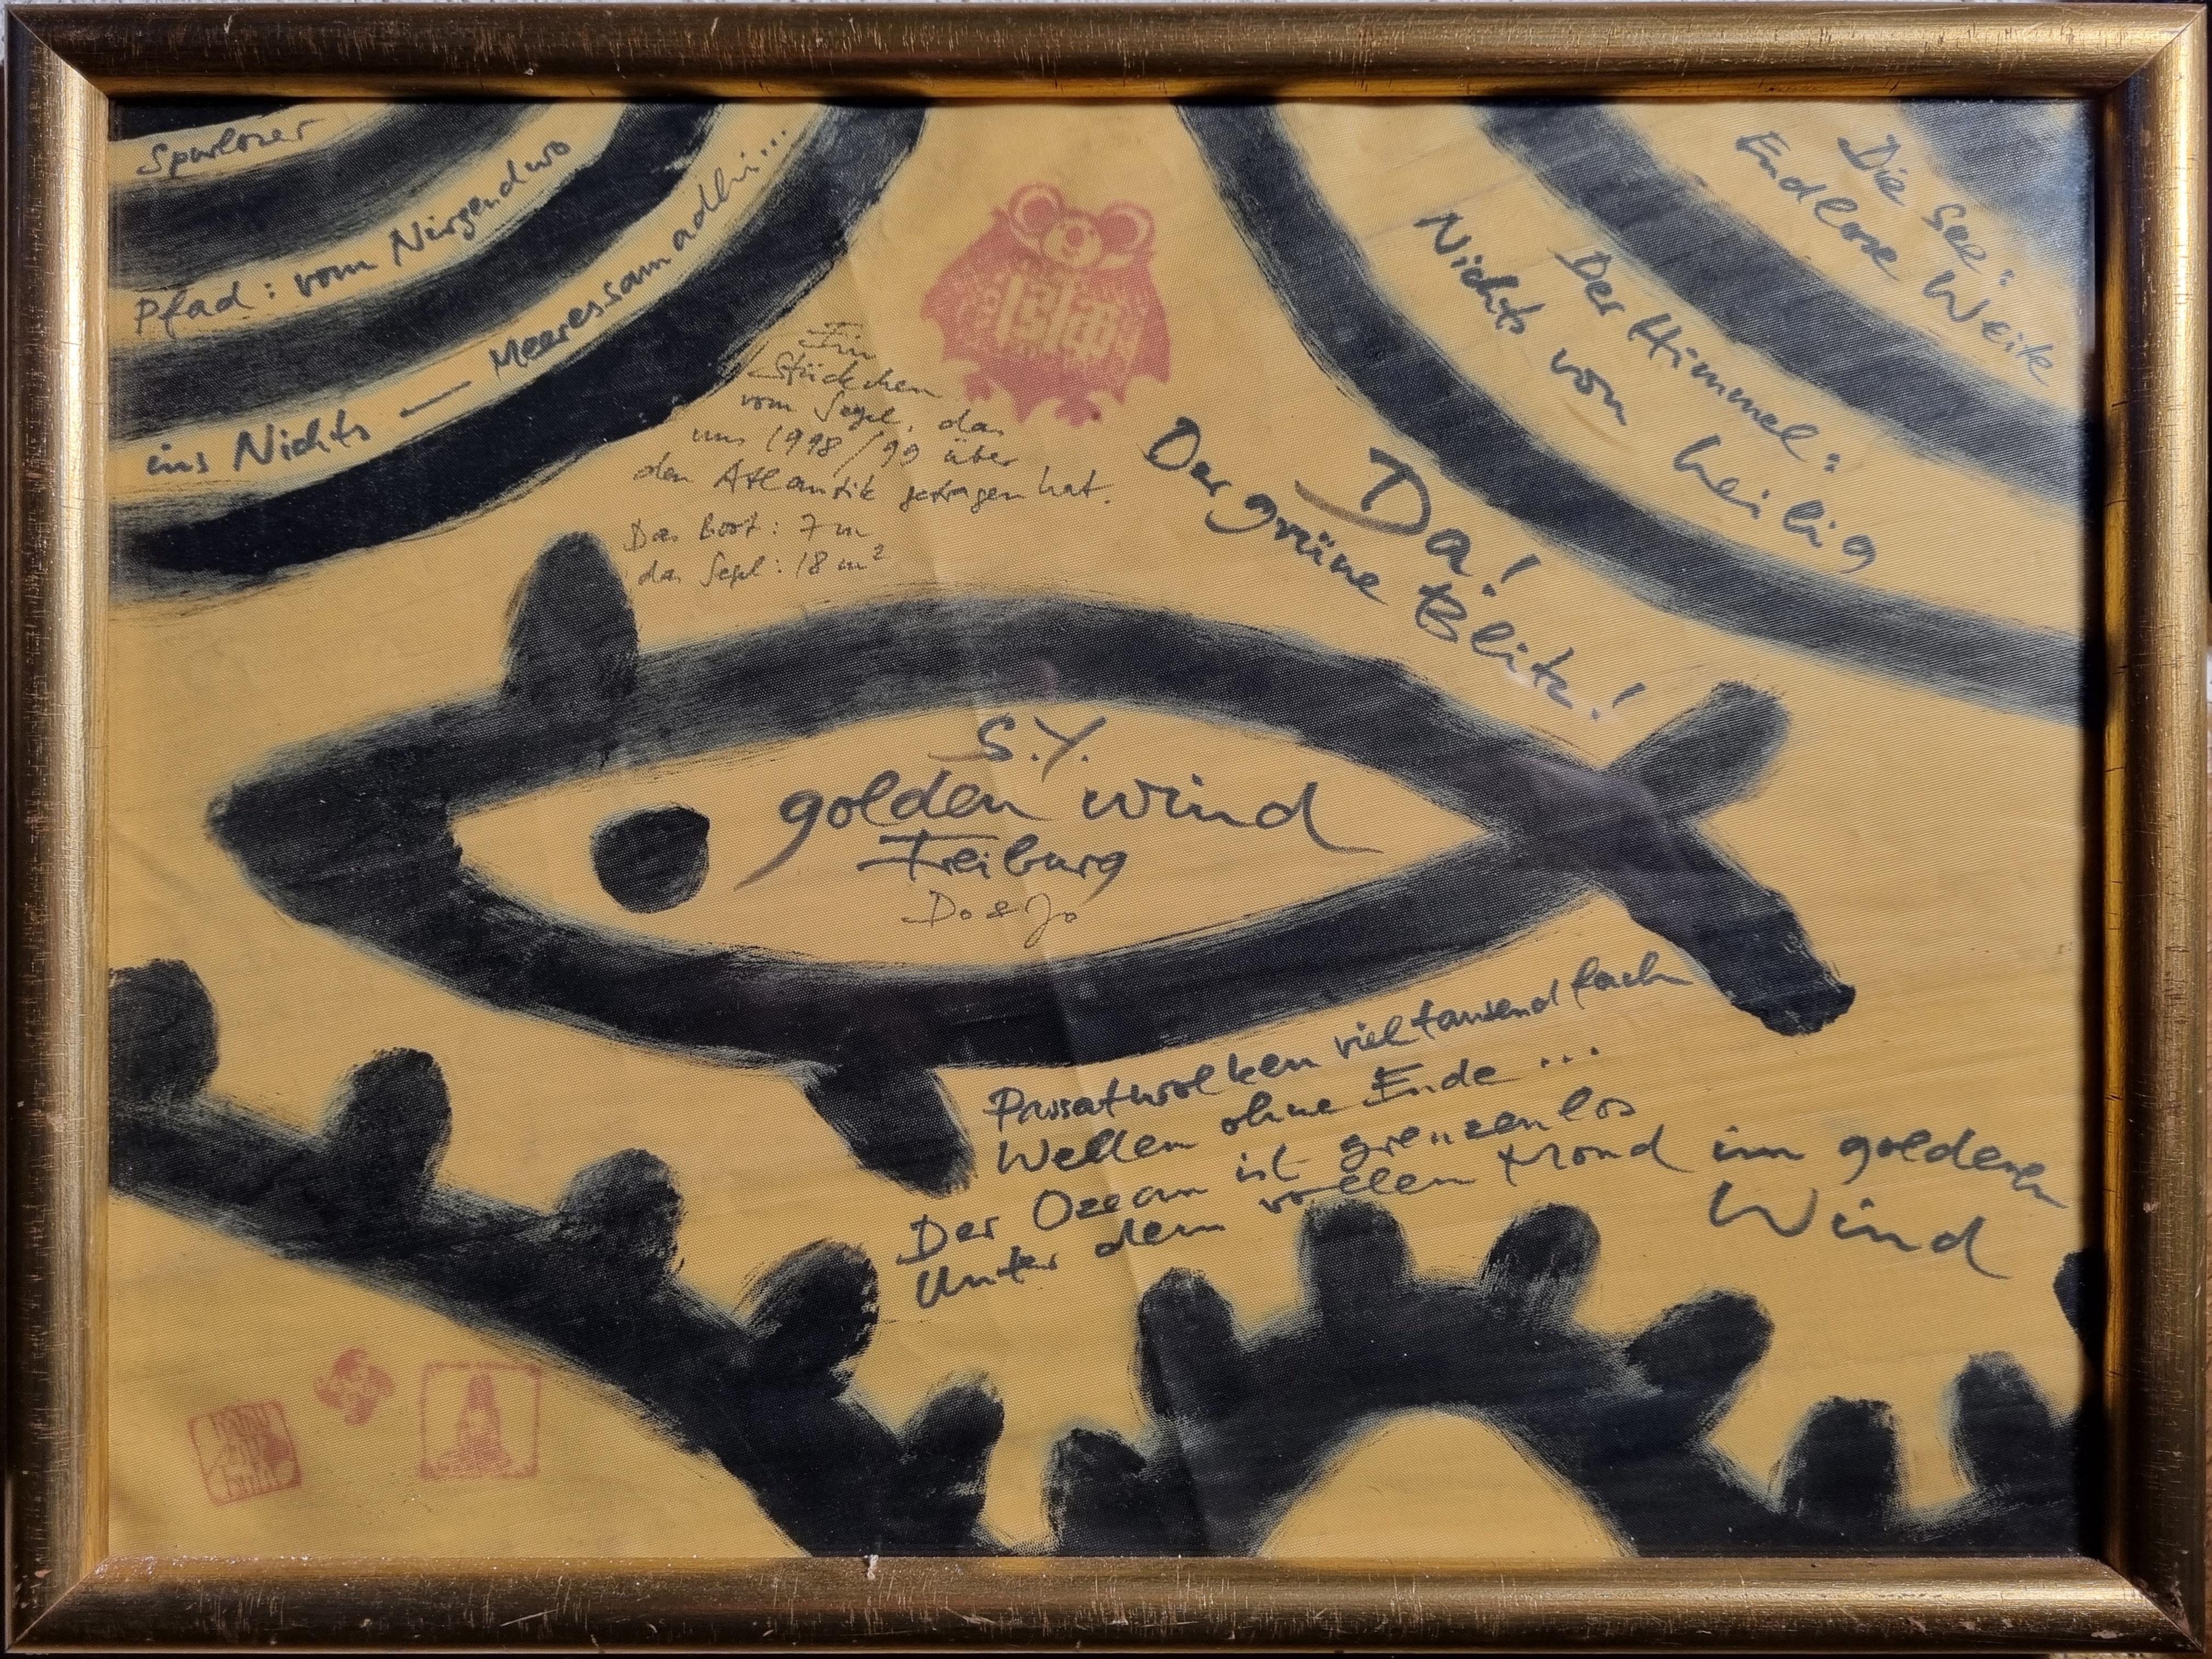 Spurloser
Pfad: vom Nirgendwo
ins Nichts — Meeressamadhi...
Ein
Stückchen
vom Segel, das
uns 1998/99 über
den Atlantik getragen hat.
Das Boot: 7 m
das Segel: 18 m²
Die See:
Endlose Weite
Der Himmel:
Nichts von heilig
Da!
Der grüne Blitz!
S.Y.
golden wind
Freiburg
Do & Jo
Passatwolken vieltausendfach
Wellen ohne Ende ...
Der Ozean ist grenzenlos
Unter dem vollen Mond im goldenen
Wind